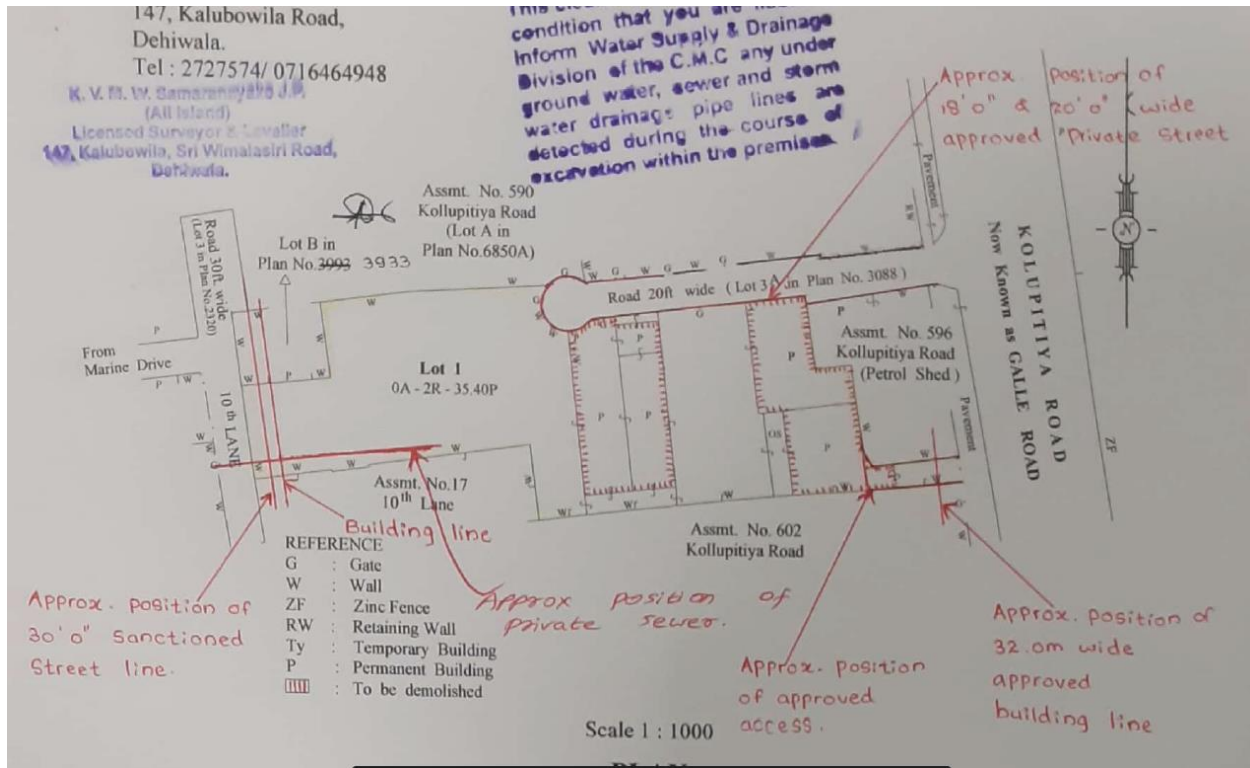 147, Kalubowila Road,
Dehiwala.
Tel : 2727574/ 0716464948
K. V. M. W. Samaranayake J.P.
(All Island)
Licensed Surveyor & Leveller
147, Kalubowila, Sri Wimalasiri Road,
Dehiwala.
condition that you are
Inform Water Supply & Drainage
Division of the C.M.C any under
ground water, sewer and storm
water drainage pipe lines are
detected during the course of
excavation within the premises
Approx position of
18'0" & 20'0" wide
approved "Private Street
Assmt. No. 590
Kollupitiya Road
(Lot A in
Plan No.6850A)
Lot B in
Plan No.3993 3933
Road 30ft. wide
(Lot 3 in Plan No.2320)
From
Marine Drive
10 th LANE
Lot 1
0A - 2R - 35.40P
Road 20ft wide ( Lot 3A in Plan No. 3088 )
Assmt. No. 596
Kollupitiya Road
(Petrol Shed )
Pavement
RW
Pavement
KOLUPITIYA ROAD
Now Known as GALLE ROAD
N
ZF
OS
Assmt. No.17
10th Lane
Assmt. No. 602
Kollupitiya Road
Building line
REFERENCE
G : Gate
W : Wall
ZF : Zinc Fence
RW : Retaining Wall
Ty : Temporary Building
P : Permanent Building
: To be demolished
Approx. position of
30'0" Sanctioned
Street line.
Approx position of
private sewer.
Approx. position
of approved
access.
Approx. position of
32.0m wide
approved
building line
Scale 1 : 1000